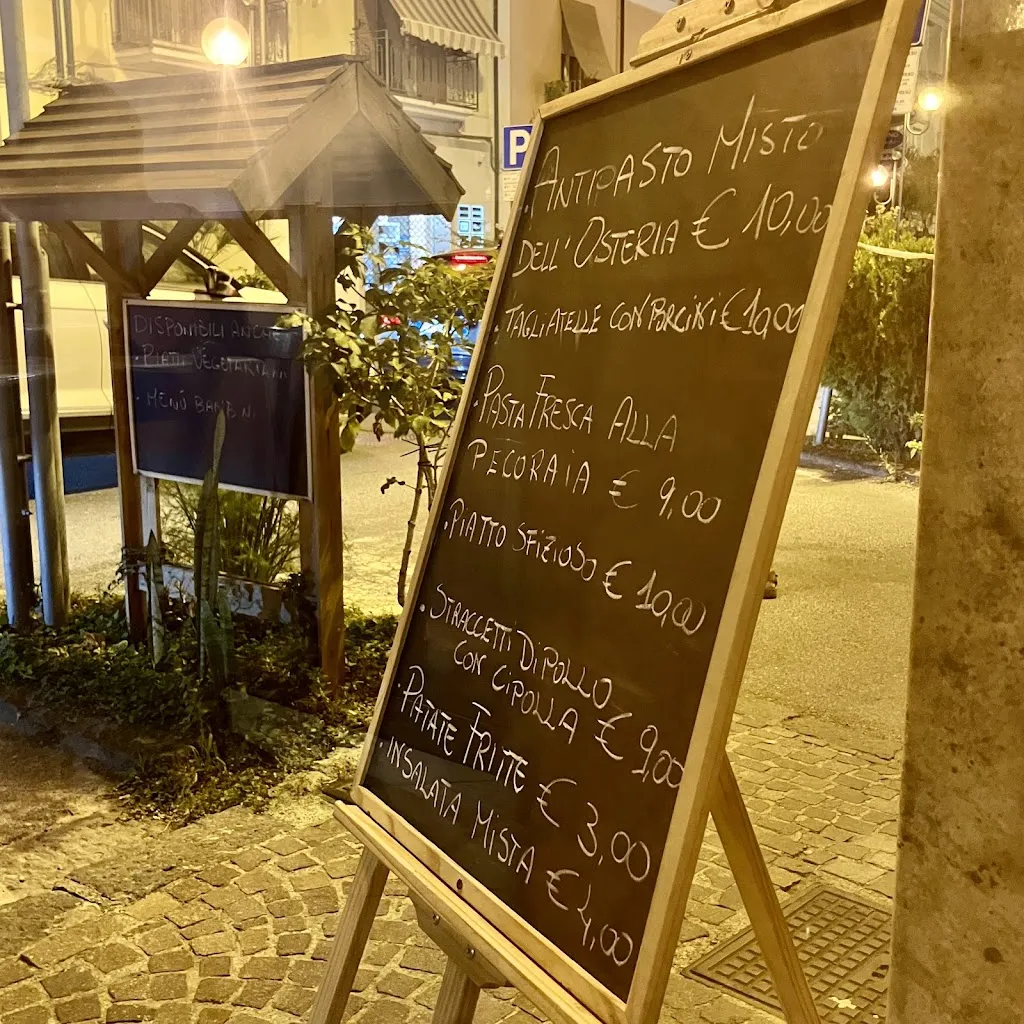 P
. ANTIPASTO MISTO
DELL'OSTERIA € 10,00
. TAGLIATELLE CON PORCINI € 10,00
. PASTA FRESCA ALLA
PECORAIA € 9,00
. PIATTO SFIZIOSO € 10,00
. STRACCETTI DI POLLO
CON CIPOLLA € 9,00
. PATATE FRITTE € 3,00
. INSALATA MISTA € 4,00
DISPONIBILI ANCHE
. PIATTI VEGETARIANI
. MENÙ BAMBINI